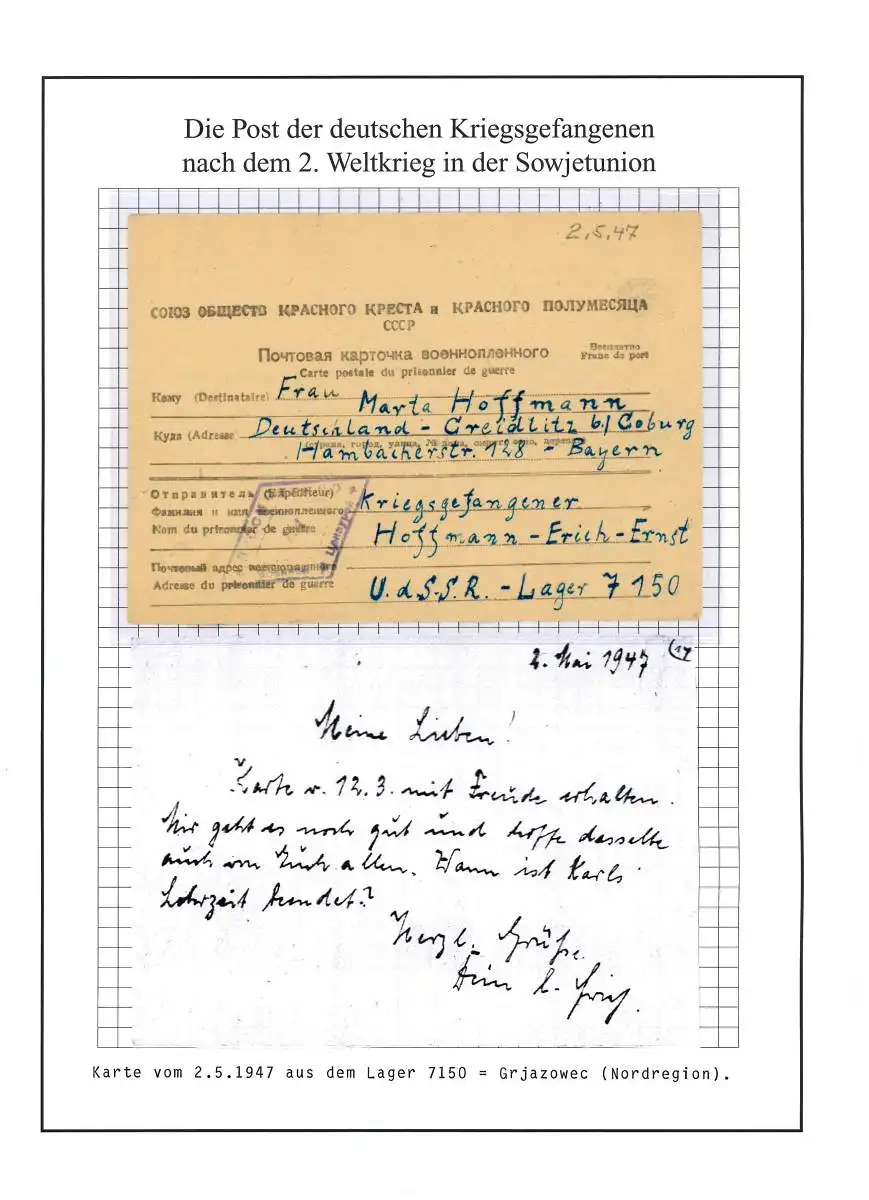 Die Post der deutschen Kriegsgefangenen
nach dem 2. Weltkrieg in der Sowjetunion
2.5.47
СОЮЗ ОБЩЕСТВ КРАСНОГО КРЕСТА и КРАСНОГО ПОЛУМЕСЯЦА
СССР
Почтовая карточка военнопленного
Бесплатно
Franc de port
Carte postale du prisonnier de guerre
Кому (Destinataire) Frau Marta Hoffmann
Куда (Adresse) Deutschland - Creidlitz b./Coburg
Hambacherstr. 128 - Bayern
Отправитель (Expéditeur) Kriegsgefangener
Фамилия и имя военнопленного
Nom du prisonnier de guerre Hoffmann - Erich - Ernst
Почтовый адрес военнопленного
Adresse du prisonnier de guerre U.d.S.S.R. - Lager 7 150
2. Mai 1947 (17
Meine Lieben!
Karte v. 12.3. mit Freude erhalten.
Mir geht es noch gut und hoffe dasselbe
auch von Euch allen. Wann ist Karls
Lehrzeit beendet?
Herzl. Grüße
Dein l. Erich.
Karte vom 2.5.1947 aus dem Lager 7150 = Grjazowec (Nordregion).